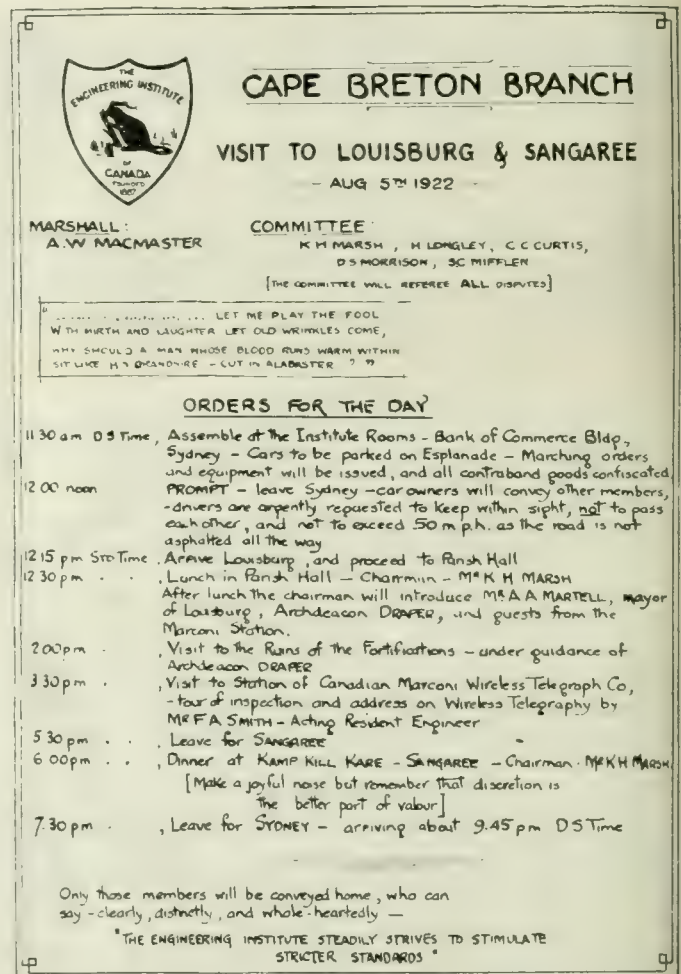 THE
ENGINEERING INSTITUTE
OF
CANADA
FOUNDED
1887
CAPE BRETON BRANCH
VISIT TO LOUISBURG & SANGAREE
- AUG 5TH 1922 -
MARSHALL:
A.W MACMASTER
COMMITTEE
K H MARSH, H LONGLEY, C C CURTIS,
D S MORRISON, SC MIFFLEN
[THE COMMITTEE WILL REFEREE ALL DISPUTES]
" ........ LET ME PLAY THE FOOL
WITH MIRTH AND LAUGHTER LET OLD WRINKLES COME,
WHY SHOULD A MAN WHOSE BLOOD RUNS WARM WITHIN
SIT LIKE HIS GRANDSIRE - CUT IN ALABASTER ? "
ORDERS FOR THE DAY
11 30 am D S Time, Assemble at the Institute Rooms - Bank of Commerce Bldg,
Sydney - Cars to be parked on Esplanade - Marching orders
and equipment will be issued, and all contraband goods confiscated
12 00 noon PROMPT - leave Sydney - car owners will convey other members,
- drivers are urgently requested to keep within sight, not to pass
each other, and not to exceed 50 m p.h. as the road is not
asphalted all the way
12 15 pm STD Time . Arrive Louisburg, and proceed to Parish Hall
12 30 pm . . , Lunch in Parish Hall - Chairman - Mr K H MARSH
After lunch the chairman will introduce Mr A A MARTELL, mayor
of Louisburg, Archdeacon DRAPER, and guests from the
Marconi Station.
2 00 pm . , Visit to the Ruins of the Fortifications - under guidance of
Archdeacon DRAPER
3 30 pm . , Visit to Station of Canadian Marconi Wireless Telegraph Co,
- tour of inspection and address on Wireless Telegraphy by
Mr F A SMITH - Acting Resident Engineer
5 30 pm . . , Leave for SANGAREE
6 00 pm . . , Dinner at KAMP KILL KARE - SANGAREE - Chairman - Mr K H MARSH
[Make a joyful noise but remember that discretion is
the better part of valour]
7.30 pm . , Leave for SYDNEY - arriving about 9.45 pm D S Time
Only those members will be conveyed home, who can
say - clearly, distinctly, and whole-heartedly -
"THE ENGINEERING INSTITUTE STEADILY STRIVES TO STIMULATE
STRICTER STANDARDS"